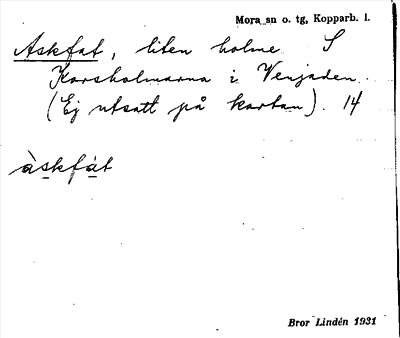 Mora sn o. tg, Kopparb. l.
Askfat, liten holme S
Korsholmarna i Venjaden.
(Ej utsatt på kartan). 14
àskfàt
Bror Lindén 1931